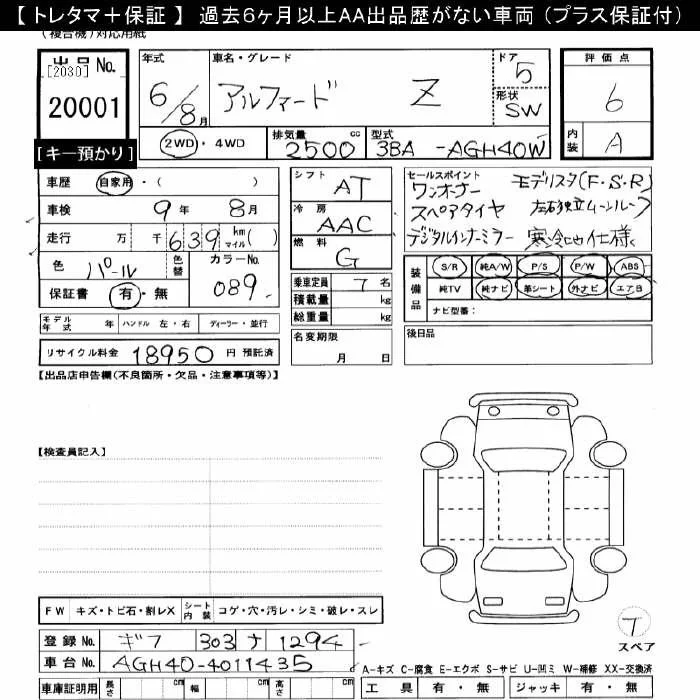 【 トレタマ＋保証 】 過去6ヶ月以上AA出品歴がない車両（プラス保証付）
（複合機）対応用紙
出品 No.
[2030]
20001
[キー預かり]
年式
6/8月
車名・グレード
アルファード Z
ドア
5
形状
SW
評価点
6
内装
A
2WD・4WD
排気量
2500 cc
型式
3BA -AGH40W
車歴 自家用・( )
車検 9年 8月
走行 万 千 639 km マイル( )
色 パール 色替
カラーNo. 089
保証書 有・無
シフト
AT
冷房
AAC
燃料
G
乗車定員 7 名
積載量 kg
総重量 kg
名変期限
月 日
セールスポイント
ワンオーナー モデリスタ(F・S・R)
スペアタイヤ 左右独立ムーンルーフ
デジタルインナーミラー 寒冷地仕様
装備品
S/R 純A/W P/S P/W ABS
純TV 純ナビ 革シート 外ナビ エアB
ナビ型番：
モデル年式 年 ハンドル 左・右 ディーラー・並行
リサイクル料金 18950 円 預託済
後日品
【出品店申告欄(不良箇所・欠品・注意事項等)】
【検査員記入】
FW キズ・トビ石・割レX シート内装 コゲ・穴・汚レ・シミ・破レ・スレ
登録No. ギフ 303 ナ 1294
車台No. AGH40-4011435
T
スペア
A-キズ C-腐食 E-エクボ S-サビ U-凹ミ W-補修 XX-交換済
車庫証明用 長さ cm 幅 cm 高さ cm
工具 有・無 ジャッキ 有・無